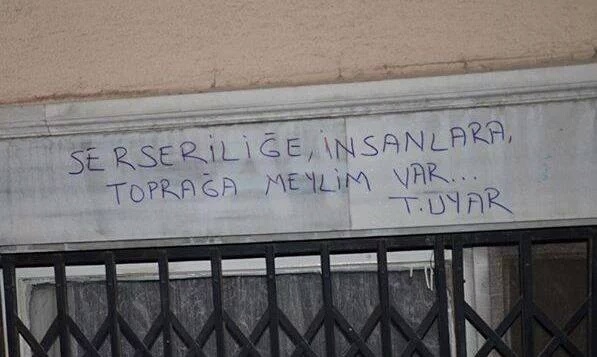 SERSERİLİĞE, İNSANLARA,
TOPRAĞA MEYLİM VAR...
T.UYAR